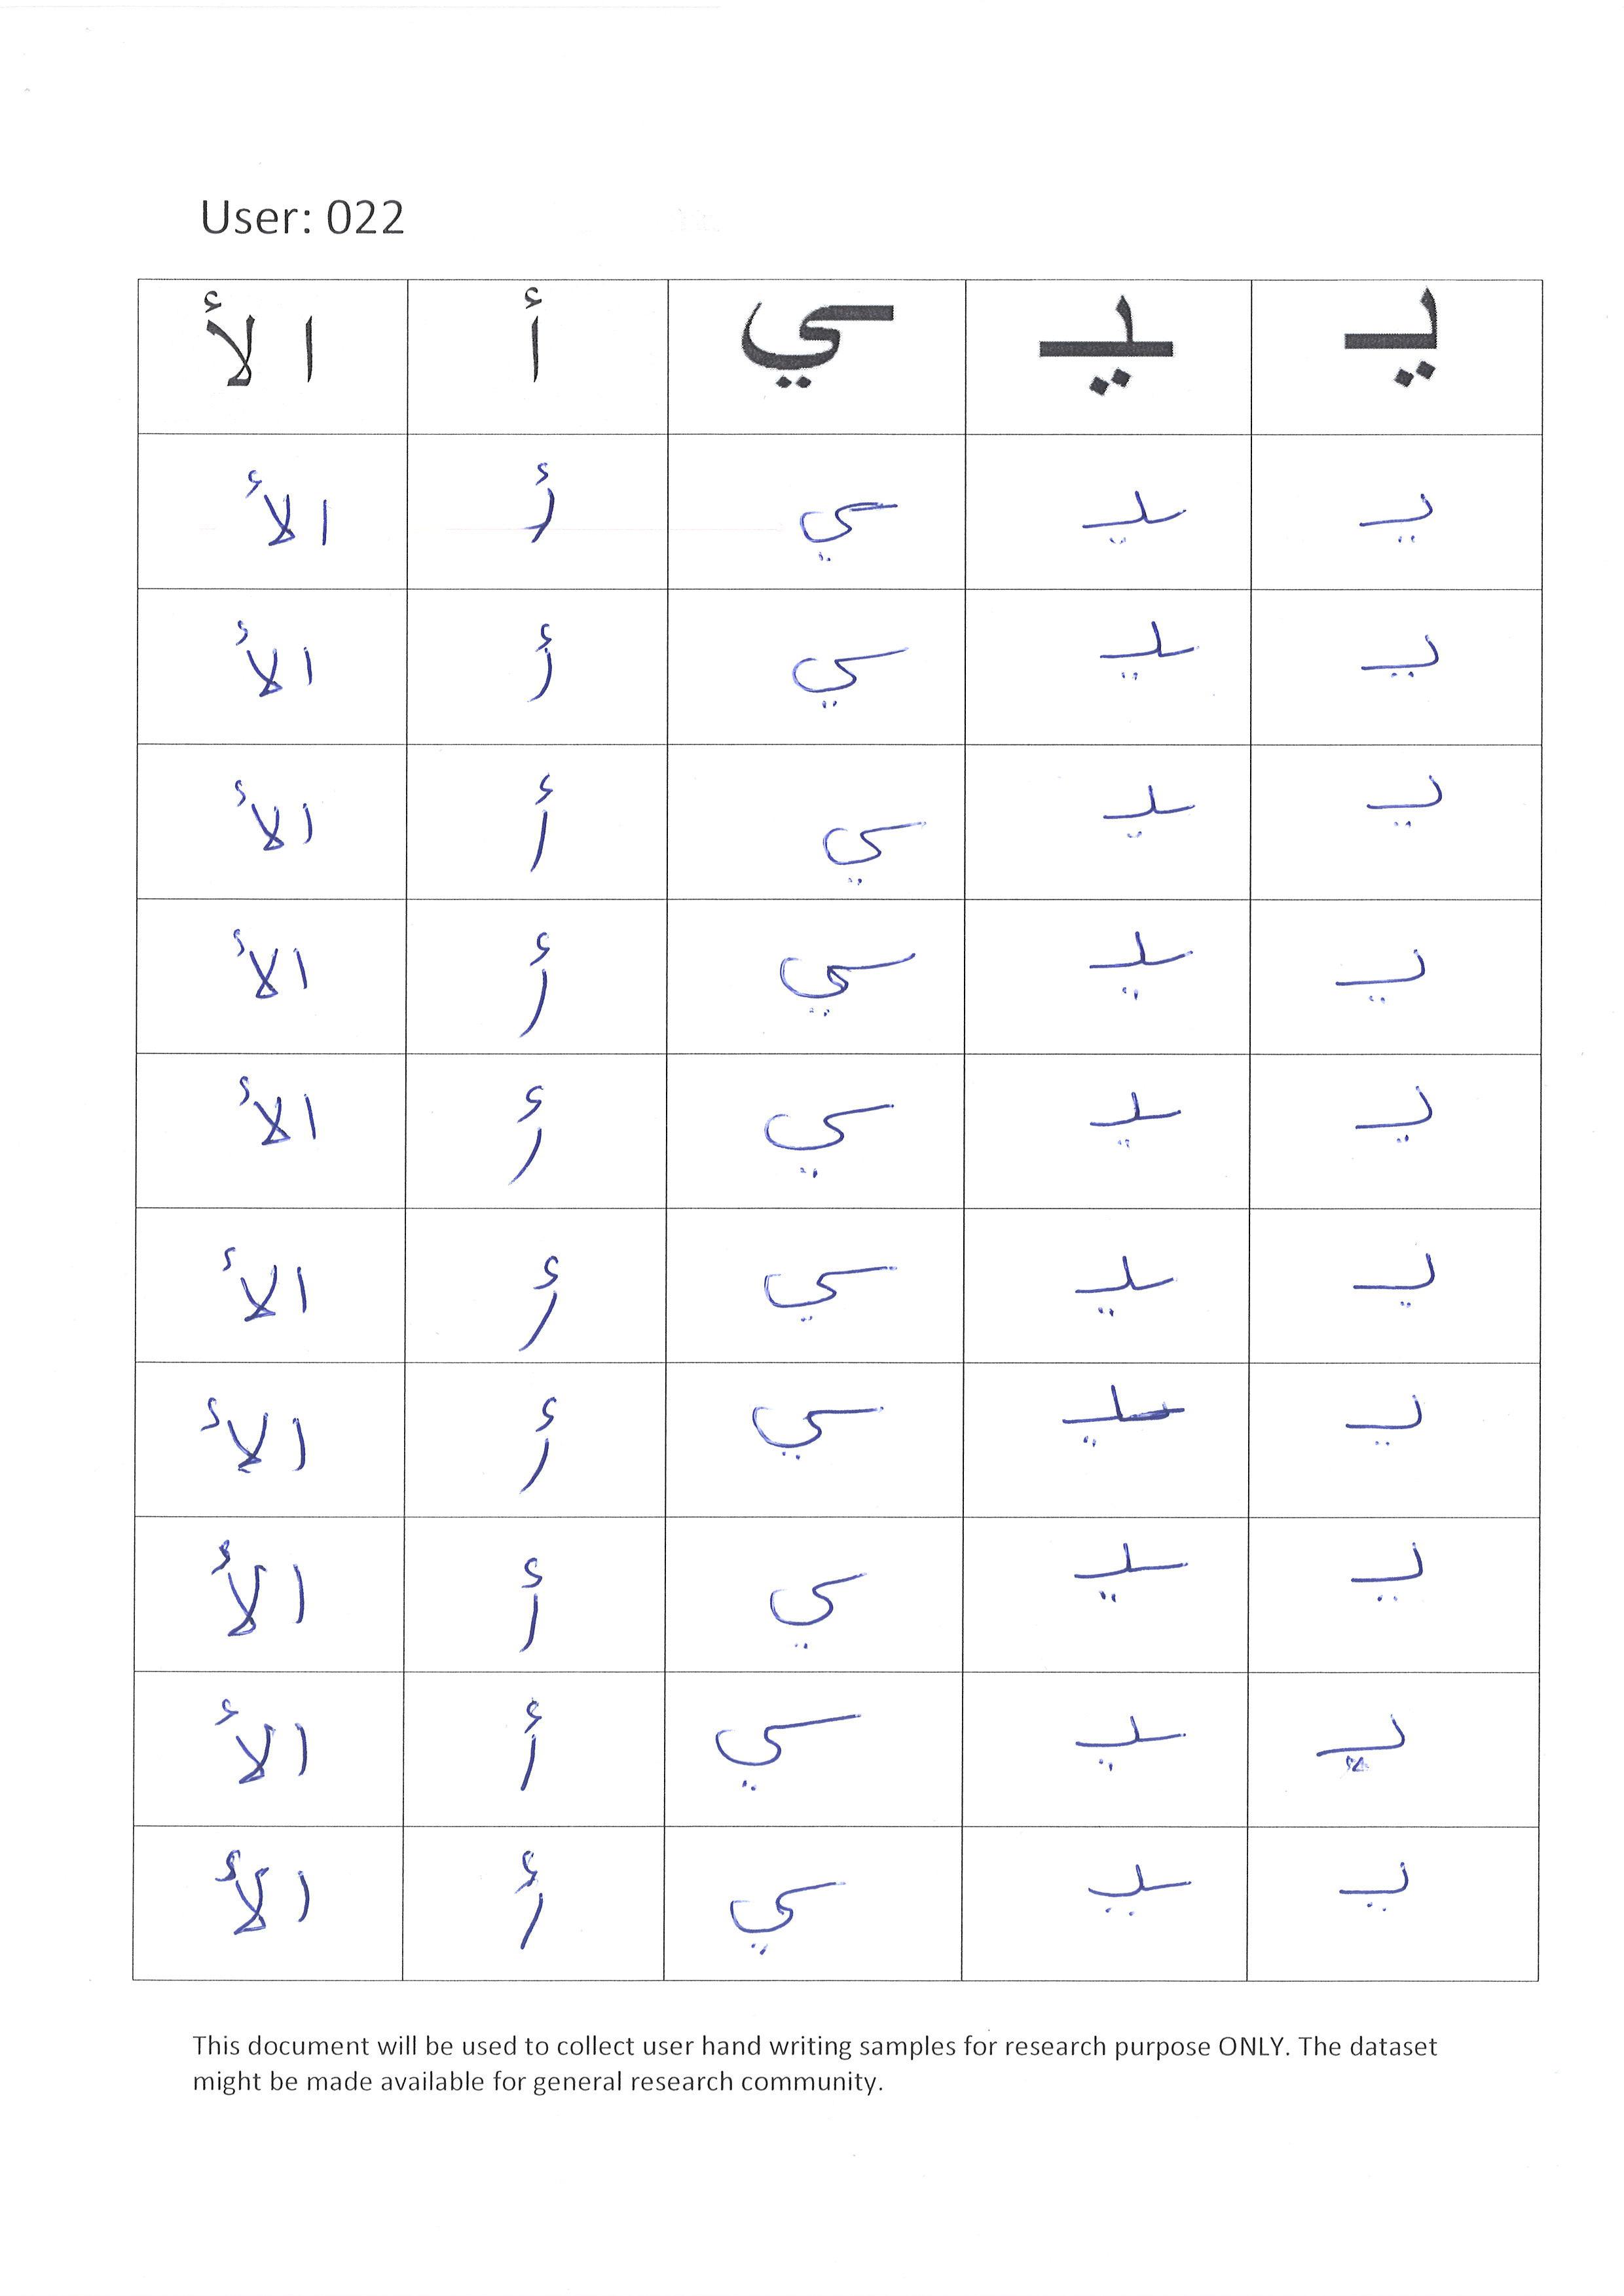 User: 022
يـ ـيـ ـي أ الأ
يـ ـيـ ـي أ الأ
يـ ـيـ ـي أ الأ
يـ ـيـ ـي أ الأ
يـ ـيـ ـي أ الأ
يـ ـيـ ـي أ الأ
يـ ـيـ ـي أ الأ
يـ ـيـ ـي أ الأ
يـ ـيـ ـي أ الأ
يـ ـيـ ـي أ الأ
يـ ـيـ ـي أ الأ
This document will be used to collect user hand writing samples for research purpose ONLY. The dataset
might be made available for general research community.